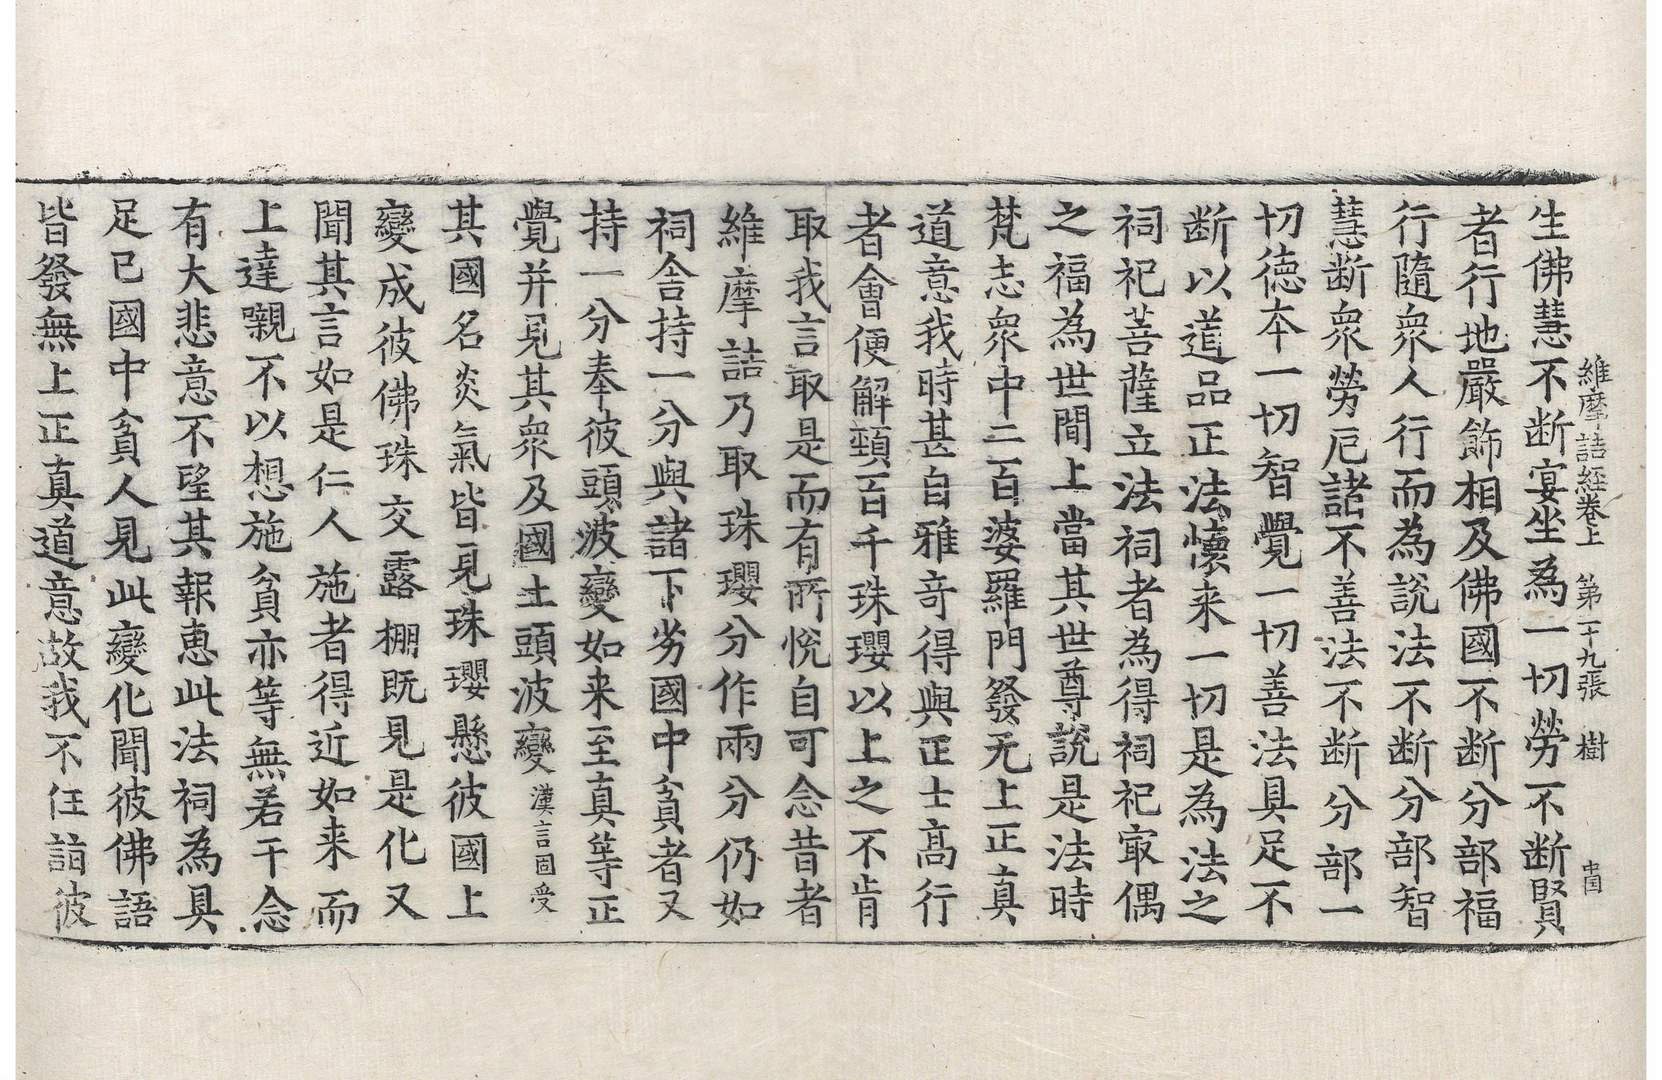 維摩詰經卷上 第二十九張 樹
生佛慧不断宴坐為一切勞不断賢
者行地嚴飾相及佛國不断分部福
行隨衆人行而為說法不断分部智
慧断衆勞厄諸不善法不断分部一
切德夲一切智覺一切善法具足不
断以道品正法懐来一切是為法之
祠祀菩薩立法祠者為得祠祀㝡偶
之福為世間上當其世尊說是法時
梵志衆中二百婆羅門發无上正真
道意我時甚自雅竒得與正士髙行
者會便解頸百千珠瓔以上之不肯
取我言取是而有所悅自可念昔者
維摩詰乃取珠瓔分作兩分仍如
祠舎持一分與諸下劣國中貧者又
持一分奉彼頭波變如来至真等正
覺并見其衆及國土頭波變漢言固受
其國名炎氣皆見珠瓔懸彼國上
變成彼佛珠交露棚既見是化又
聞其言如是仁人施者得近如来而
上達嚫不以想施貧亦等無若干念
有大悲意不望其報恵此法祠為具
足已國中貧人見此變化聞彼佛語
皆發無上正真道意故我不任詣彼